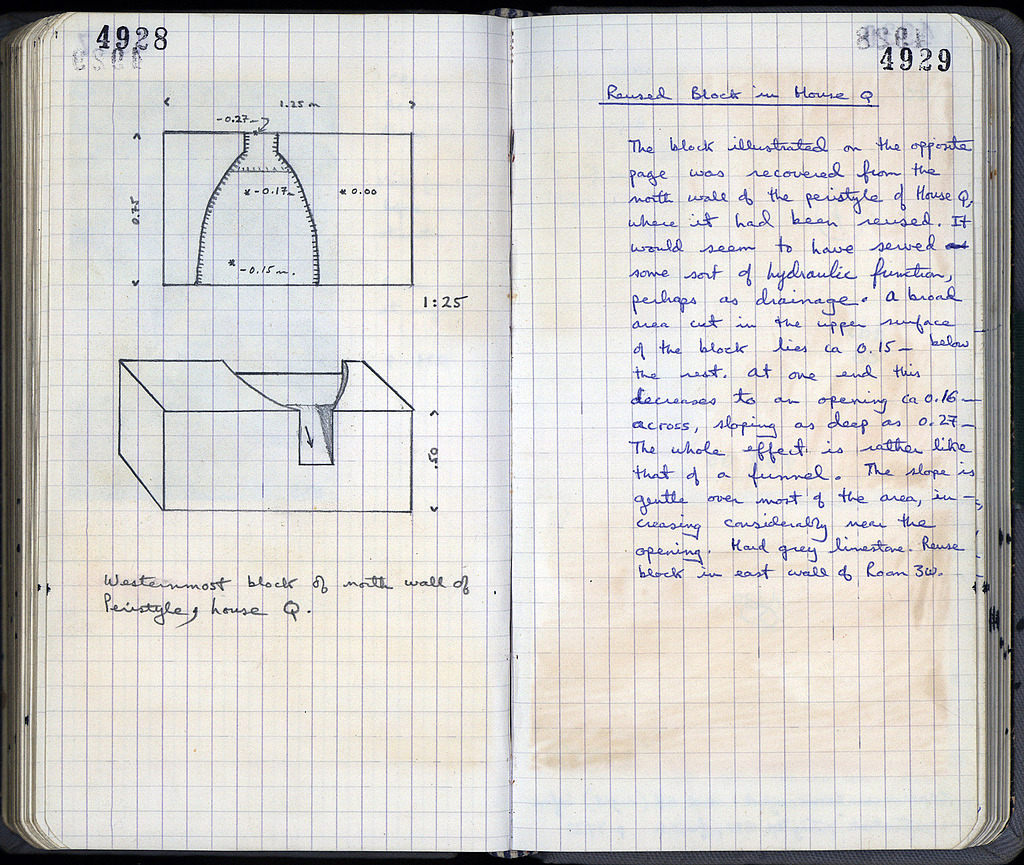 4928
1.25 m
-0.27-
0.75
*-0.17-
*0.00
*-0.15m.
1:25
.50
Westernmost block of north wall of
Peristyle, house Q.
4929
Reused Block in House Q
The block illustrated on the opposite
page was recovered from the
north wall of the peristyle of House Q,
where it had been reused. It
would seem to have served
some sort of hydraulic function,
perhaps as drainage. A broad
area cut in the upper surface
of the block lies ca 0.15- below
the rest. At one end this
decreases to an opening ca 0.16-
across, sloping as deep as 0.27-
The whole effect is rather like
that of a funnel. The slope is
gentle over most of the area, in-
creasing considerably near the
opening. Hard grey limestone. Reuse
block in east wall of Room 3W.